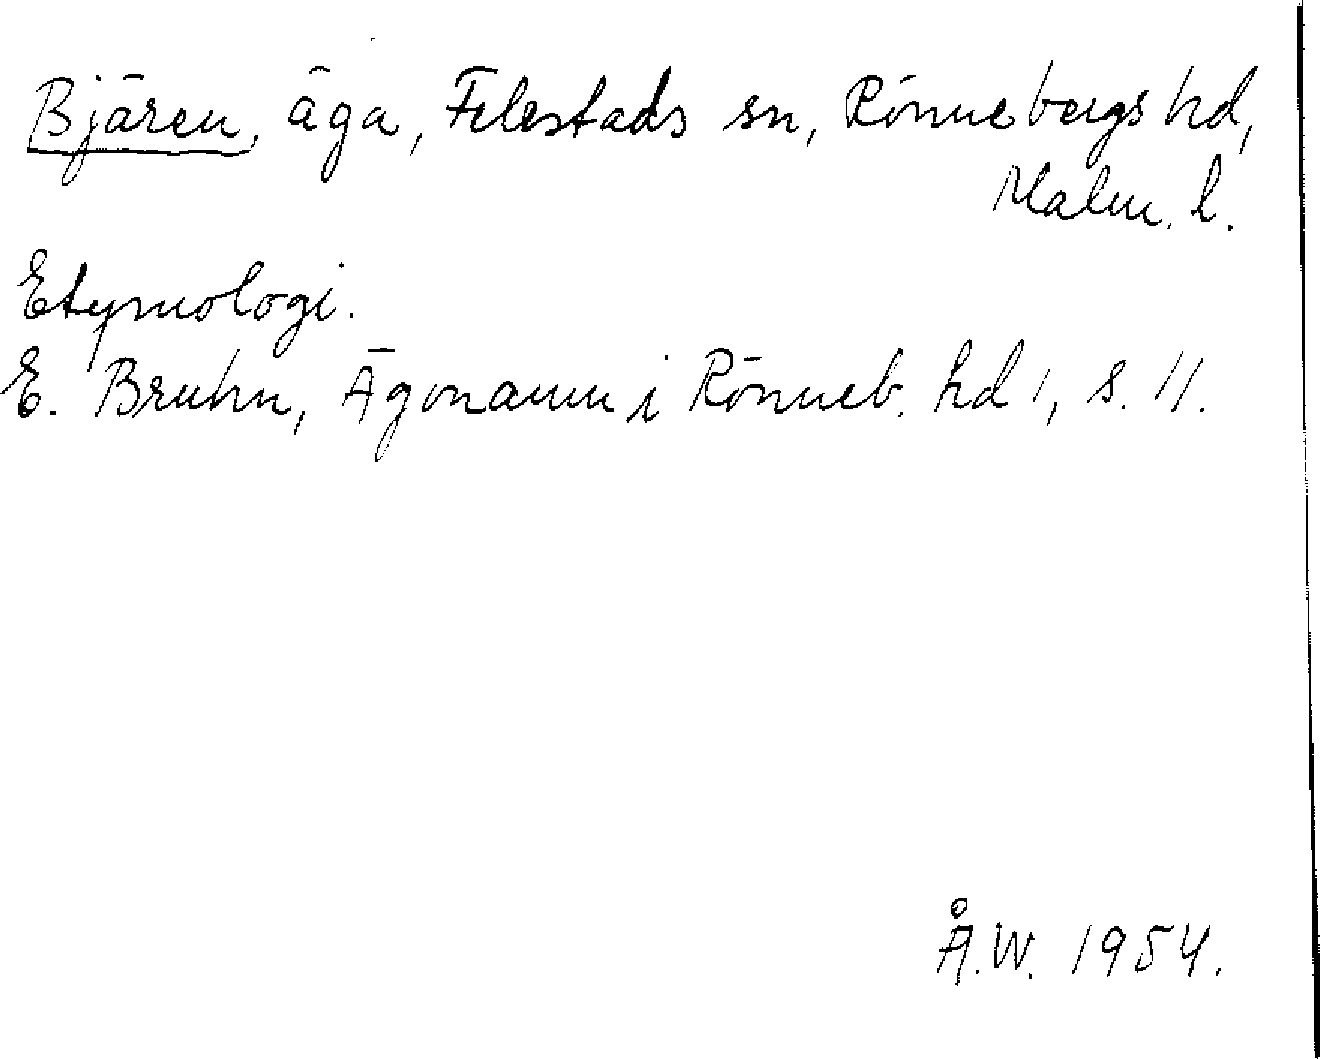 Bjären, äga, Felestads sn, Rönnebergs hd,
Malm. l.
Etymologi.
E. Bruhn, Ägonamn i Rönneb. hd 1, s. 11.
Å.W. 1954.